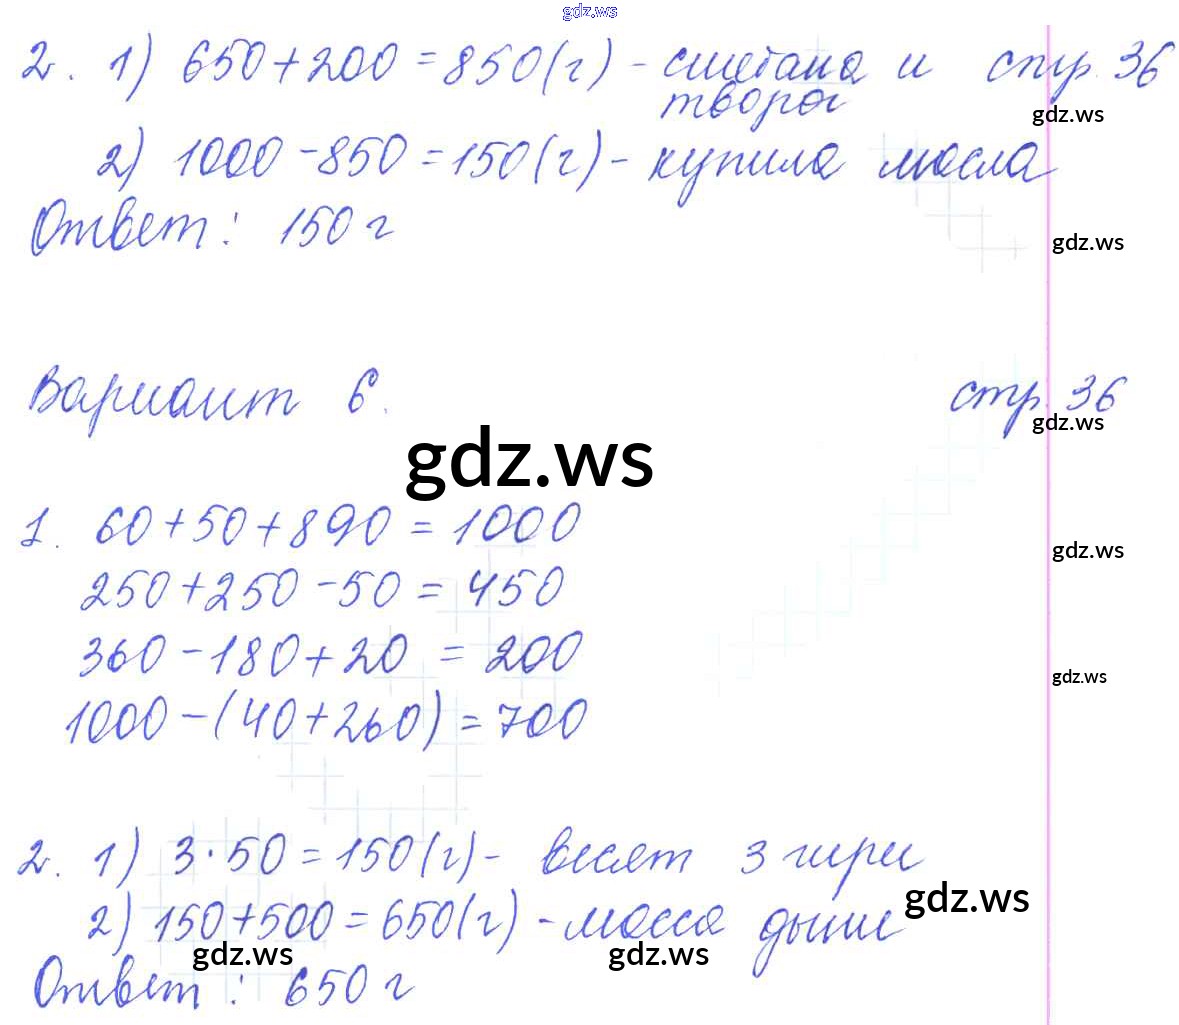 gdz.ws
2. 1) 650+200=850(г) - сметана и стр. 36
творог
gdz.ws
2) 1000-850=150(г) - купила масла
Ответ: 150 г
gdz.ws
Вариант 6. стр. 36
gdz.ws
gdz.ws
1. 60+50+890=1000
gdz.ws
250+250-50=450
360-180+20=200
gdz.ws
1000-(40+260)=700
2. 1) 3·50=150(г) - весят 3 гири
gdz.ws
2) 150+500=650(г) - масса дыни
gdz.ws gdz.ws
Ответ: 650 г